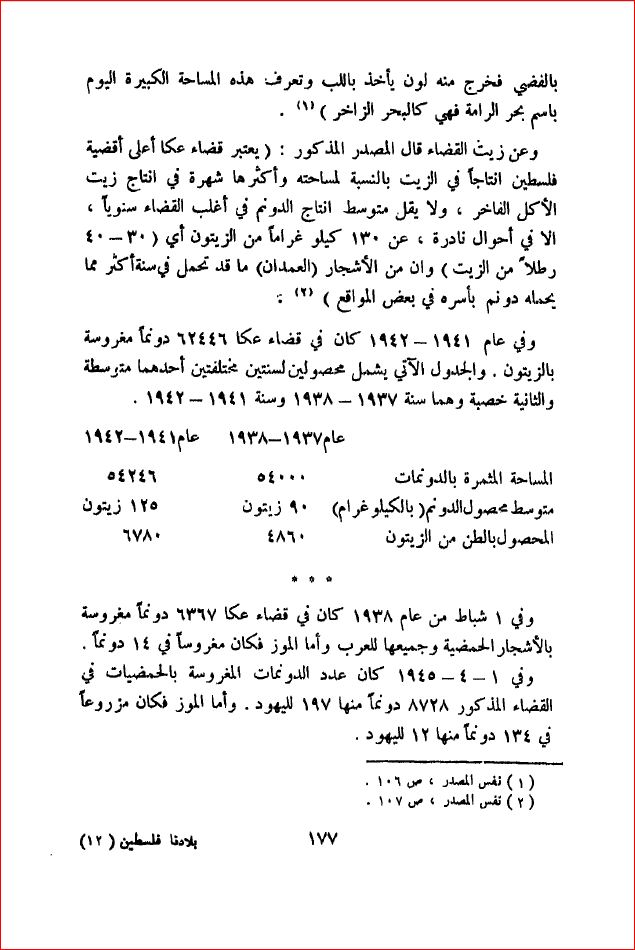 بالفضي فخرج منه لون يأخذ باللب وتعرف هذه المساحة الكبيرة اليوم
باسم بحر الرامة فهي كالبحر الزاخر ) (١) .
وعن زيت القضاء قال المصدر المذكور : ( يعتبر قضاء عكا أعلى أقضية
فلسطين انتاجاً في الزيت بالنسبة لمساحته وأكثرها شهرة في انتاج زيت
الأكل الفاخر ، ولا يقل متوسط انتاج الدونم في أغلب القضاء سنوياً ،
الا في أحوال نادرة ، عن ١٣٠ كيلو غراماً من الزيتون أي ( ٣٠ – ٤٠
رطلاً من الزيت ) وان من الأشجار (العمدان) ما قد تحمل في سنة أكثر مما
يحمله دونم بأسره في بعض المواقع ) (٢) :
وفي عام ١٩٤١ – ١٩٤٢ كان في قضاء عكا ٦٢٤٤٦ دونماً مغروسة
بالزيتون . والجدول الآتي يشمل محصولين لسنتين مختلفتين أحدهما متوسطة
والثانية خصبة وهما سنة ١٩٣٧ – ١٩٣٨ وسنة ١٩٤١ – ١٩٤٢ .
عام ١٩٣٧–١٩٣٨ عام ١٩٤١–١٩٤٢
المساحة المثمرة بالدونمات ٥٤٠٠٠ ٥٤٢٤٦
متوسط محصول الدونم( بالكيلو غرام) ٩٠ زيتون ١٢٥ زيتون
المحصول بالطن من الزيتون ٤٨٦٠ ٦٧٨٠
* * *
وفي ١ شباط من عام ١٩٣٨ كان في قضاء عكا ٦٣٦٧ دونماً مغروسة
بالأشجار الحمضية وجميعها للعرب وأما الموز فكان مغروساً في ١٤ دونماً .
وفي ١ – ٤ – ١٩٤٥ كان عدد الدونمات المغروسة بالحمضيات في
القضاء المذكور ٨٧٢٨ دونماً منها ١٩٧ لليهود . وأما الموز فكان مزروعاً
في ١٣٤ دونماً منها ١٢ لليهود .
( ١ ) نفس المصدر ، ص ١٠٦ .
( ٢ ) نفس المصدر ، ص ١٠٧ .
١٧٧ بلادنا فلسطين ( ١٢ )